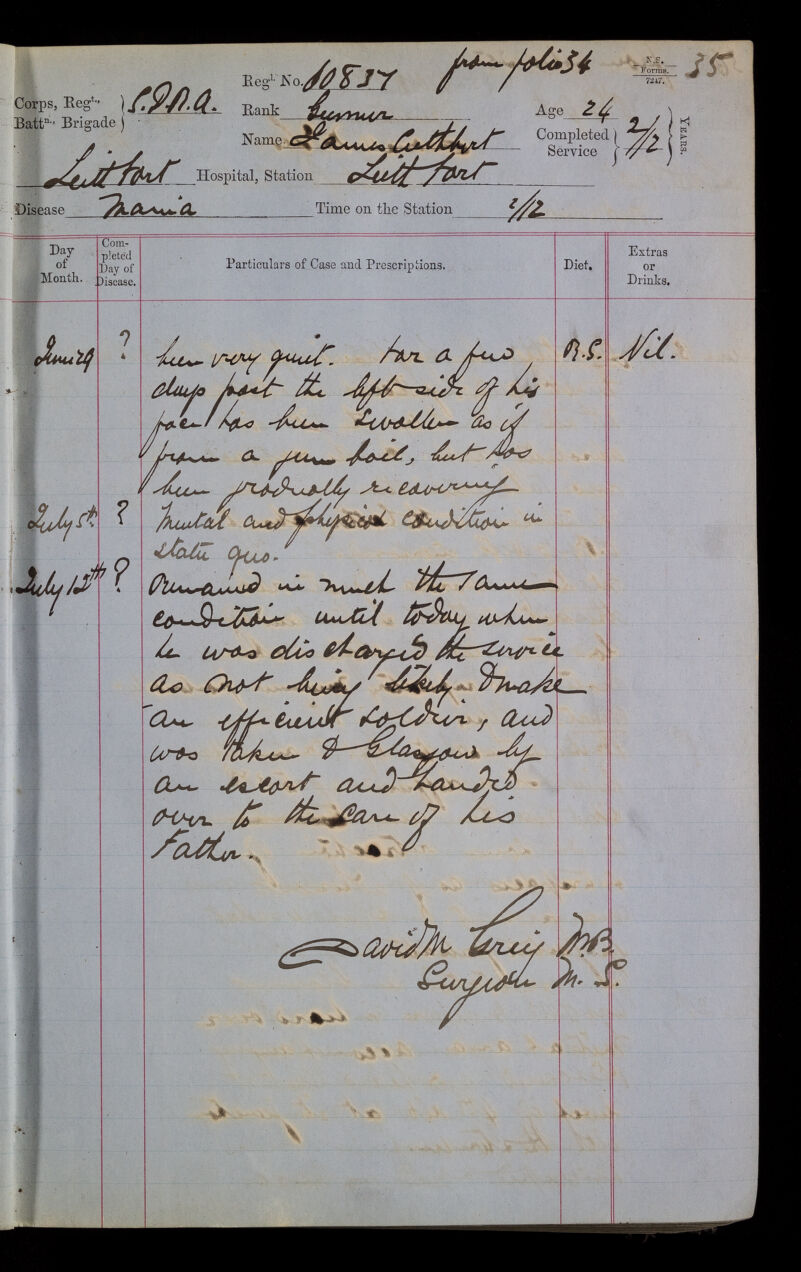 from folio 34
N.S.
Forms.
7247.
35
Corps, Regt.,
Battn., Brigade
S.D.R.A.
Regtl. No. 60837
Rank Gunner
Name James Cuthbert
Age 24
Completed Service 2/12 YEARS.
Leith Fort Hospital, Station Leith Fort
Disease Mania Time on the Station 2/12
Day of Month.
Completed Day of Disease.
Particulars of Case and Prescriptions.
Diet.
Extras or Drinks.
June 29 ? been very quiet. For a few R.S. Nil.
days past the left side of his
face has been swollen as if
from a gum boil, but has
been gradually recovering
July 5th ? Mental and physical condition in
statu quo.
July 12th ? Remained in much the same
condition until today when
he was discharged the service
as not being likely to make
an efficient soldier, and
was taken to Glasgow by
an escort and handed
over to the care of his
Father.
David M Greig M.B.
Surgeon M.S.